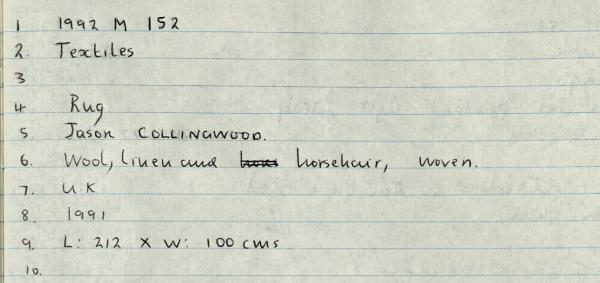 1 1992 M 152
2. Textiles
3
4 Rug
5 Jason COLLINGWOOD.
6. Wool, linen and horsehair, woven.
7. U.K
8. 1991
9. L: 212 X W: 100 cms
10.